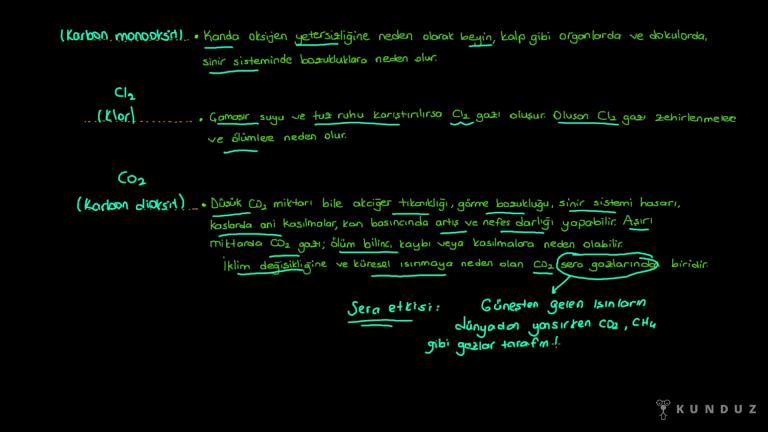 (Karbon monoksit) • Kanda oksijen yetersizliğine neden olarak beyin, kalp gibi organlarda ve dokularda,
sinir sisteminde bozukluklara neden olur.
Cl₂
(Klor) • Çamaşır suyu ve tuz ruhu karıştırılırsa Cl₂ gazı oluşur. Oluşan Cl₂ gazı zehirlenmelere
ve ölümlere neden olur.
CO₂
(Karbon dioksit) • Düşük CO₂ miktarı bile akciğer tıkanıklığı, görme bozukluğu, sinir sistemi hasarı,
kaslarda ani kasılmalar, kan basıncında artış ve nefes darlığı yapabilir. Aşırı
miktarda CO₂ gazı; ölüm bilinç, kaybı veya kasılmalara neden olabilir.
İklim değişikliğine ve küresel ısınmaya neden olan CO₂ sera gazlarından biridir.
Sera etkisi: Güneşten gelen ışınların
dünyadan yansırken CO₂, CH₄
gibi gazlar tarafın
KUNDUZ